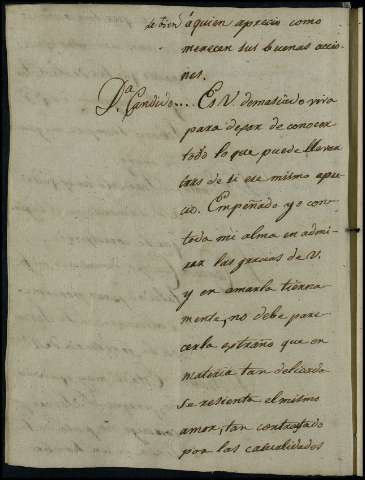 de bien á quien aprecio como
merecen sus buenas accio-
nes.
Dn. Candido... Es V. demasiado viva
para dejar de conocer
todo lo que puede llevar
tras de si ese mismo apre-
cio. Empeñado yo con
toda mi alma en admi-
rar las gracias de V.
y en amarla tierna
mente, no debe pare-
cerla estraño que en
materia tan delicada
se resienta el mismo
amor, tan contrastado
por las casualidades